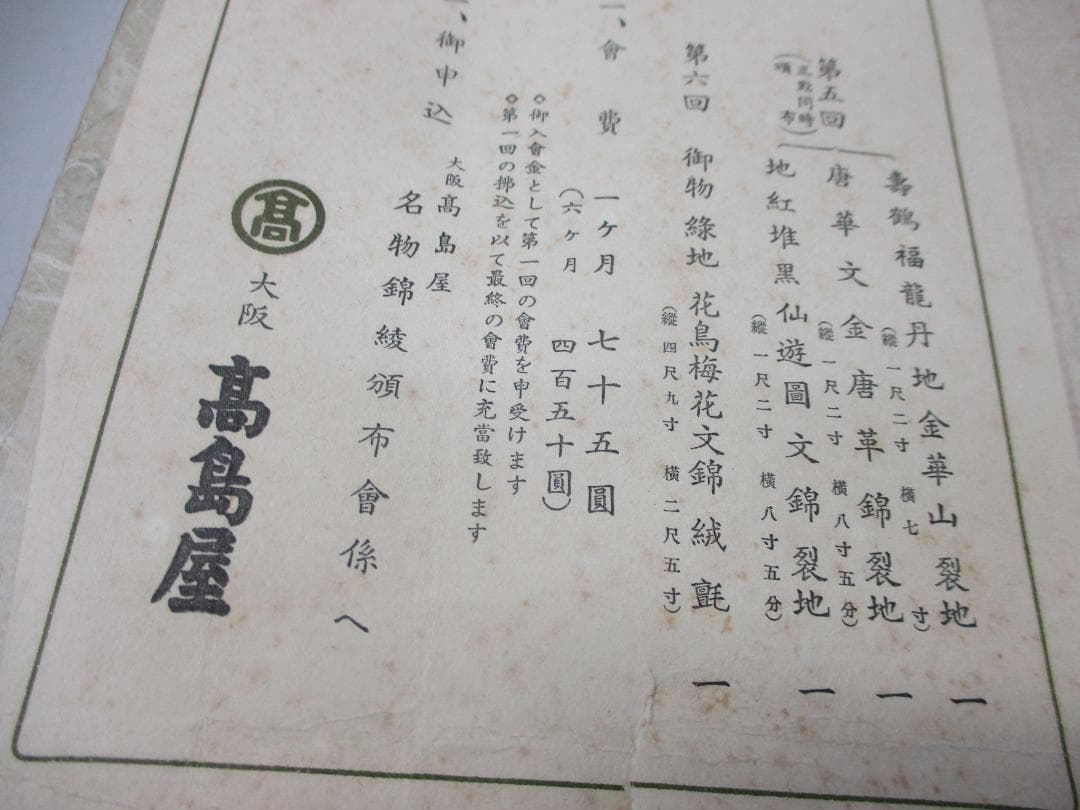 第五回
(三點同時
頒布)
壽鶴福龍丹地金華山裂地 一
(縱一尺二寸 横七寸)
唐華文金唐革錦裂地 一
(縱一尺二寸 横八寸五分)
地紅堆黑仙遊圖文錦裂地 一
(縱一尺二寸 横八寸五分)
第六回 御物綠地花鳥梅花文錦絨氈 一
(縱四尺九寸 横二尺五寸)
一、會費 一ケ月 七十五圓
(六ケ月 四百五十圓)
◇御入會金として第一回の會費を申受けます
◇第一回の拂込を以て最終の會費に充當致します
一、御申込
大阪髙島屋
名物錦綾頒布會係へ
髙
大阪
髙島屋